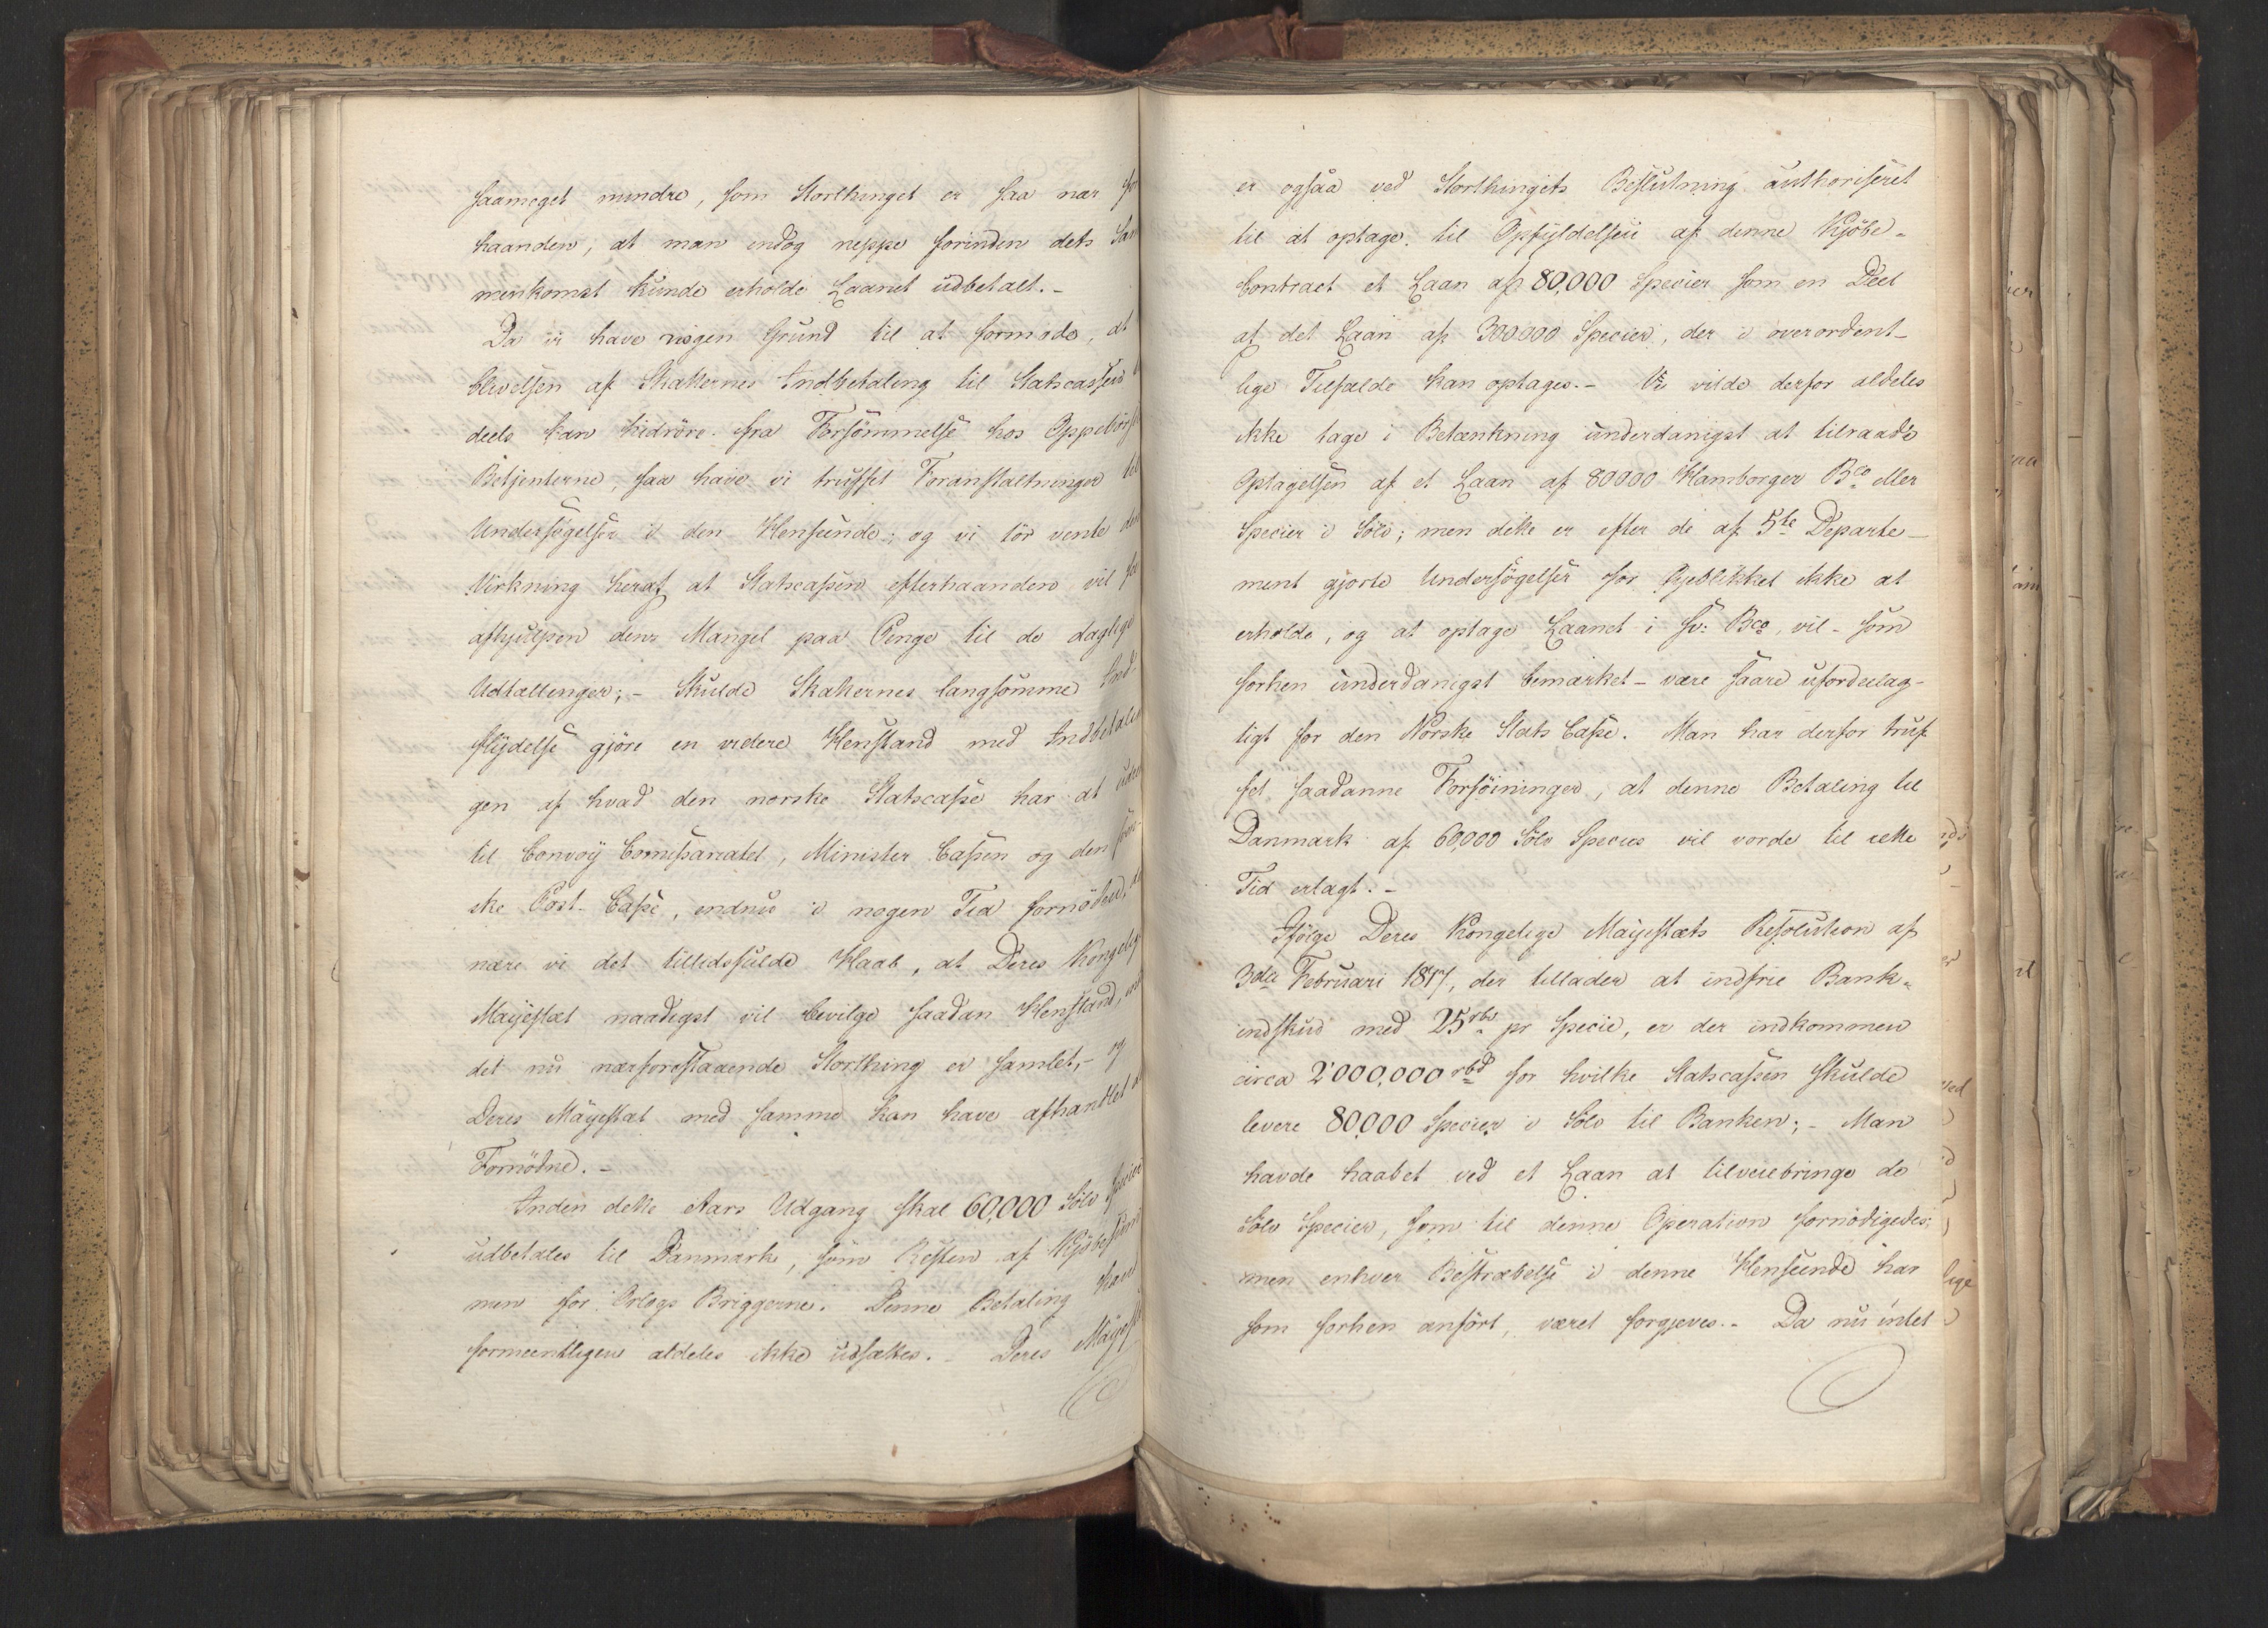 saameget mindre, som Storthinget er saa nær for
haanden, at man endog neppe forinden dets Sam
menkomst kunde erholde Laanet udbetalt.-
Da vi have nogen Grund til at formode, at
blivelsen af Skatternes Indbetaling til Statscassen
deels kan hidröre fra Forsömmelse hos Oppebörsels
Betjenterne, saa have vi truffet Foranstaltninger til
Undersögelser i den Henseende; og vi tör vente den
Virkning heraf, at Statscassen efterhaanden vil
afhjulpen dens Mangel paa Penge til de daglige
Udtællinger;- Skulde Skatternes langsomme Ind-
flydelse gjöre en videre Henstand med Indbetalin
gen af hvad den norske Statscasse har at
til Convoy Comissariatet, Minister Cassen og den sven-
ske Post-Casse, endnu i nogen Tid fornöden,
nære vi det tillidsfulde Haab, at Deres Kongelige
Mayestæt naadigst vil bevilge saadan Henstand,
det nu nærforestaaende Storthing er samlet,- og
Deres Mayestæt med samme kan have afhandlet
Fornödne.-
Inden dette Aars Udgang skal 60,000 Sölv Specier
udbetales til Danmark, som Resten af Kjöbesum
men for Orlogs Briggerne. Denne Betaling kan
formeentligen aldeles ikke udsættes.- Deres Mayestæt
er ogsaa ved Storthingets Beslutning authoriseret
til at optage, til Opfyldelsen af denne Kjöbe-
Contract et Laan af 80,000 Specier som en Deel
af det Laan af 300000 Specier, der i overordent-
lige Tilfælde kan optages.- Vi vilde derfor aldeles
ikke tage i Betænkning underdanigst at tilraade
Optagelsen af et Laan af 80000 Hamborger Bco eller
Specier i Sölv; men dette er efter de af 5te Departe-
ment gjorte Undersögelser for Öjeblikket ikke at
erholde, og at optage Laanet i Sv: Bco, vil - som
forhen underdanigst bemærket - være saare ufordeelag-
tigt for den Norske Stats Casse. Man har derfor truf
fet saadanne Forföininger, at denne Betaling til
Danmark af 60,000 Sölv Species vil vorde til rette
Tid erlagt.-
Ifölge Deres Kongelige Mayestæts Resolution af
3die Februari 1817, der tillader at indfrie Bank-
indskud med 25 rbd pr Specie, er der indkommen
circa 2'000,000 rbd for hvilke Statscassen skulde
levere 80,000 Specier i Sölv til Banken;- Man
havde haabet ved et Laan at tilveiebringe de
Sölv Specier, som til denne Operation fornödigedes;
men enhver Bestræbelse i denne Henseende har
som forhen anfört, været forgjeves.- Da nu intet